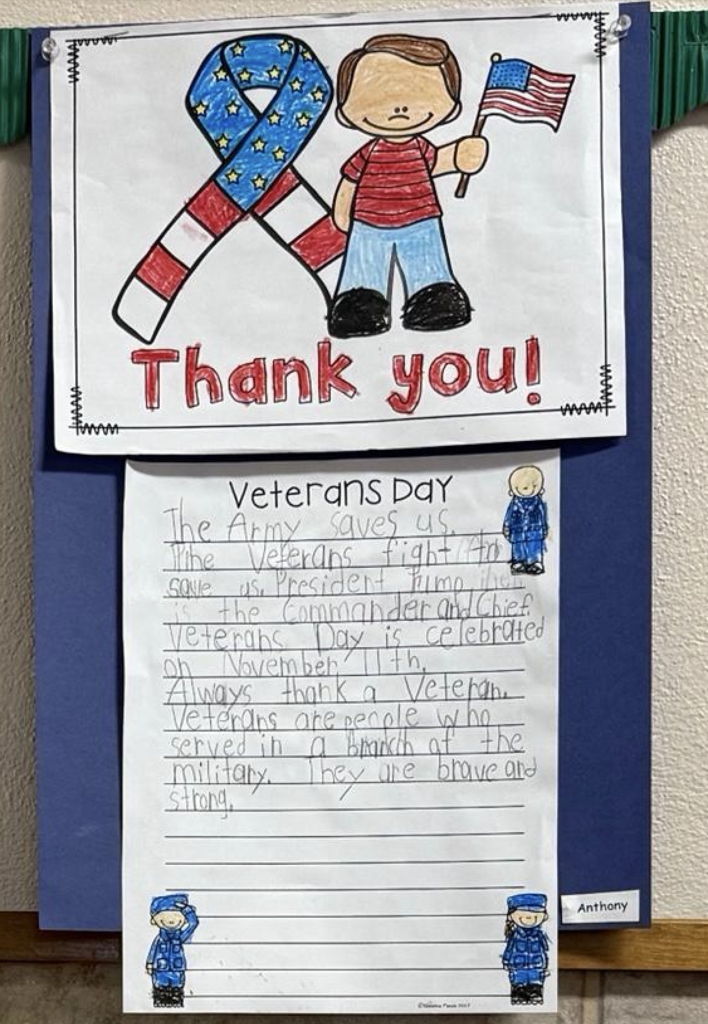 Thank you!
Veterans Day
The Army saves us.
The Veterans fight to
save us. President Tump,
is the Commander and Chief.
Veterans Day is celebrated
on November 11th.
Always thank a Veteran.
Veterans are people who
served in a branch of the
military. They are brave and
strong.
Anthony